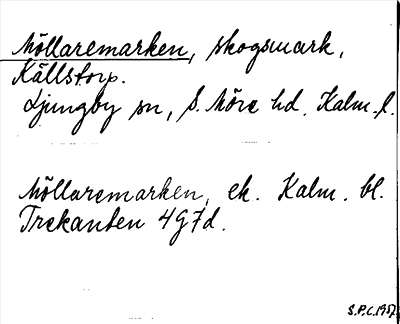 Möllaremarken, skogsmark,
Källstorp.
Ljungby sn, S. Möre hd. Kalm. l.
Möllaremarken, ek. Kalm. bl.
Trekanten 4G7d.
S.P.C. 1957